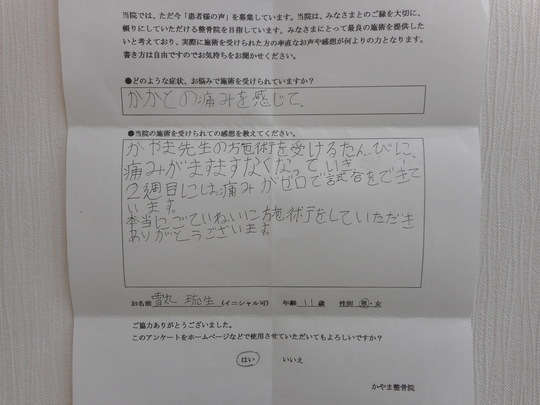 当院では、ただ今「患者様の声」を募集しています。当院は、みなさまとのご縁を大切に、
頼りにしていただける整骨院を目指しています。みなさまにとって最良の施術を提供した
いと考えており、実際に施術を受けられた方の率直なお声や感想が何よりの力となります。
書き方は自由ですのでお気持ちをお聞かせください。
●どのような症状、お悩みで施術を受けられていますか？
かかとの痛みを感じて。
●当院の施術を受けられての感想を教えてください。
かやま先生の施術を受けるたんびに、
痛みがますますなくなっていき
2週目には痛みがゼロで試合をできて
います。
本当にごていねいに施術をしていただき
ありがとうございます。
お名前 雪丸 琉生 （イニシャル可） 年齢 11 歳 性別 男・女
ご協力ありがとうございました。
このアンケートをホームページなどで使用させていただいてもよろしいですか？
はい いいえ
かやま整骨院